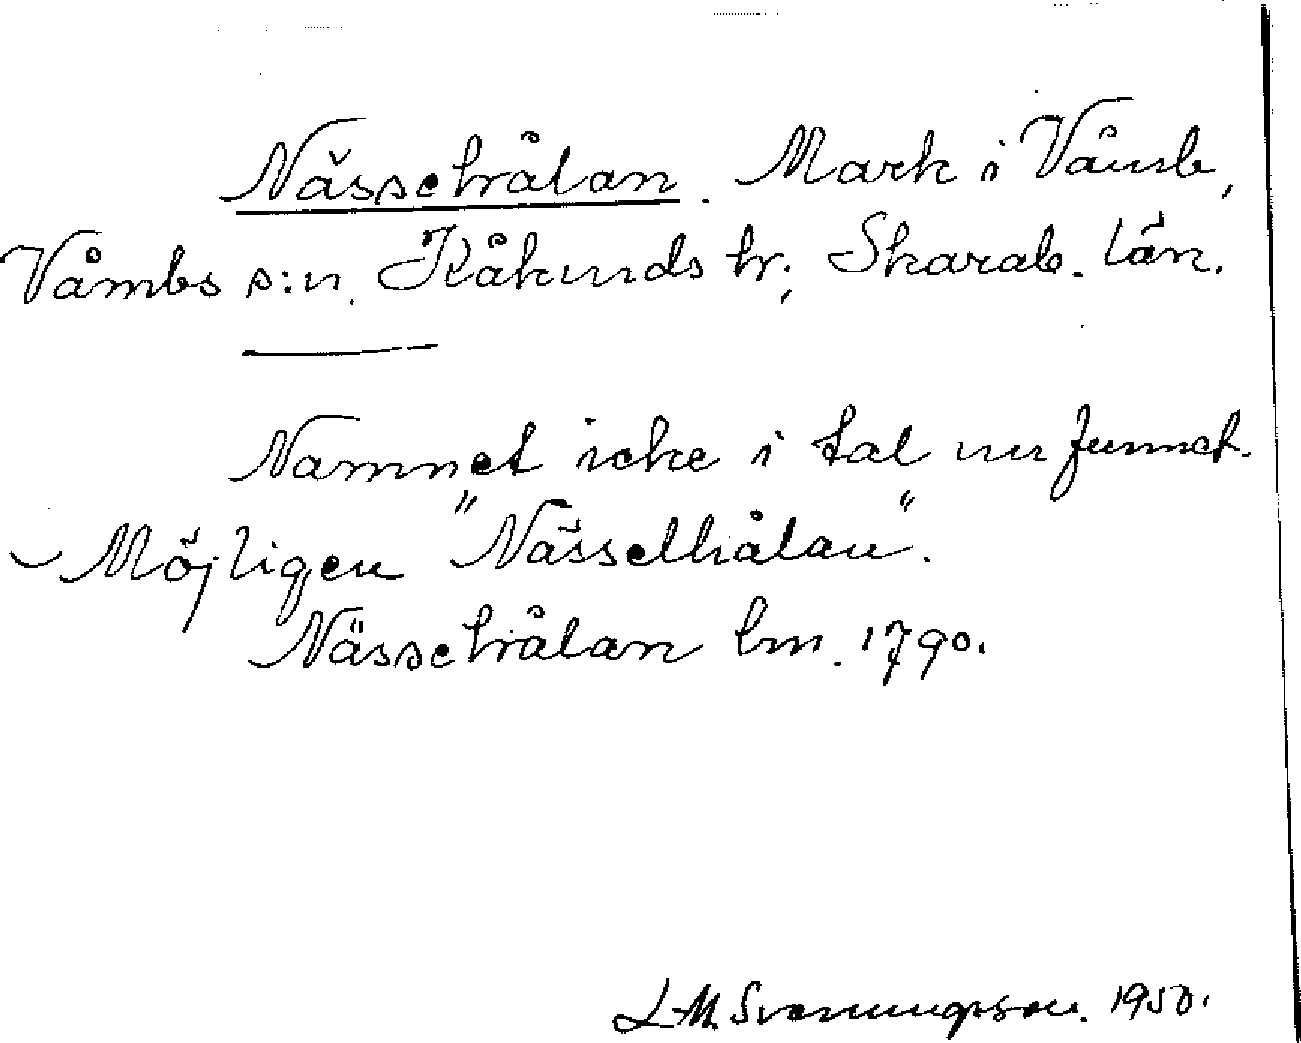 Nässehålan. Mark i Våmb,
Våmbs s:n. Kåkinds hr; Skarab. län.
Namnet icke i tal nu funnet.
Möjligen "Nässelhålan".
Nässehålan lm. 1790.
L.M. Svenungsson. 1950.